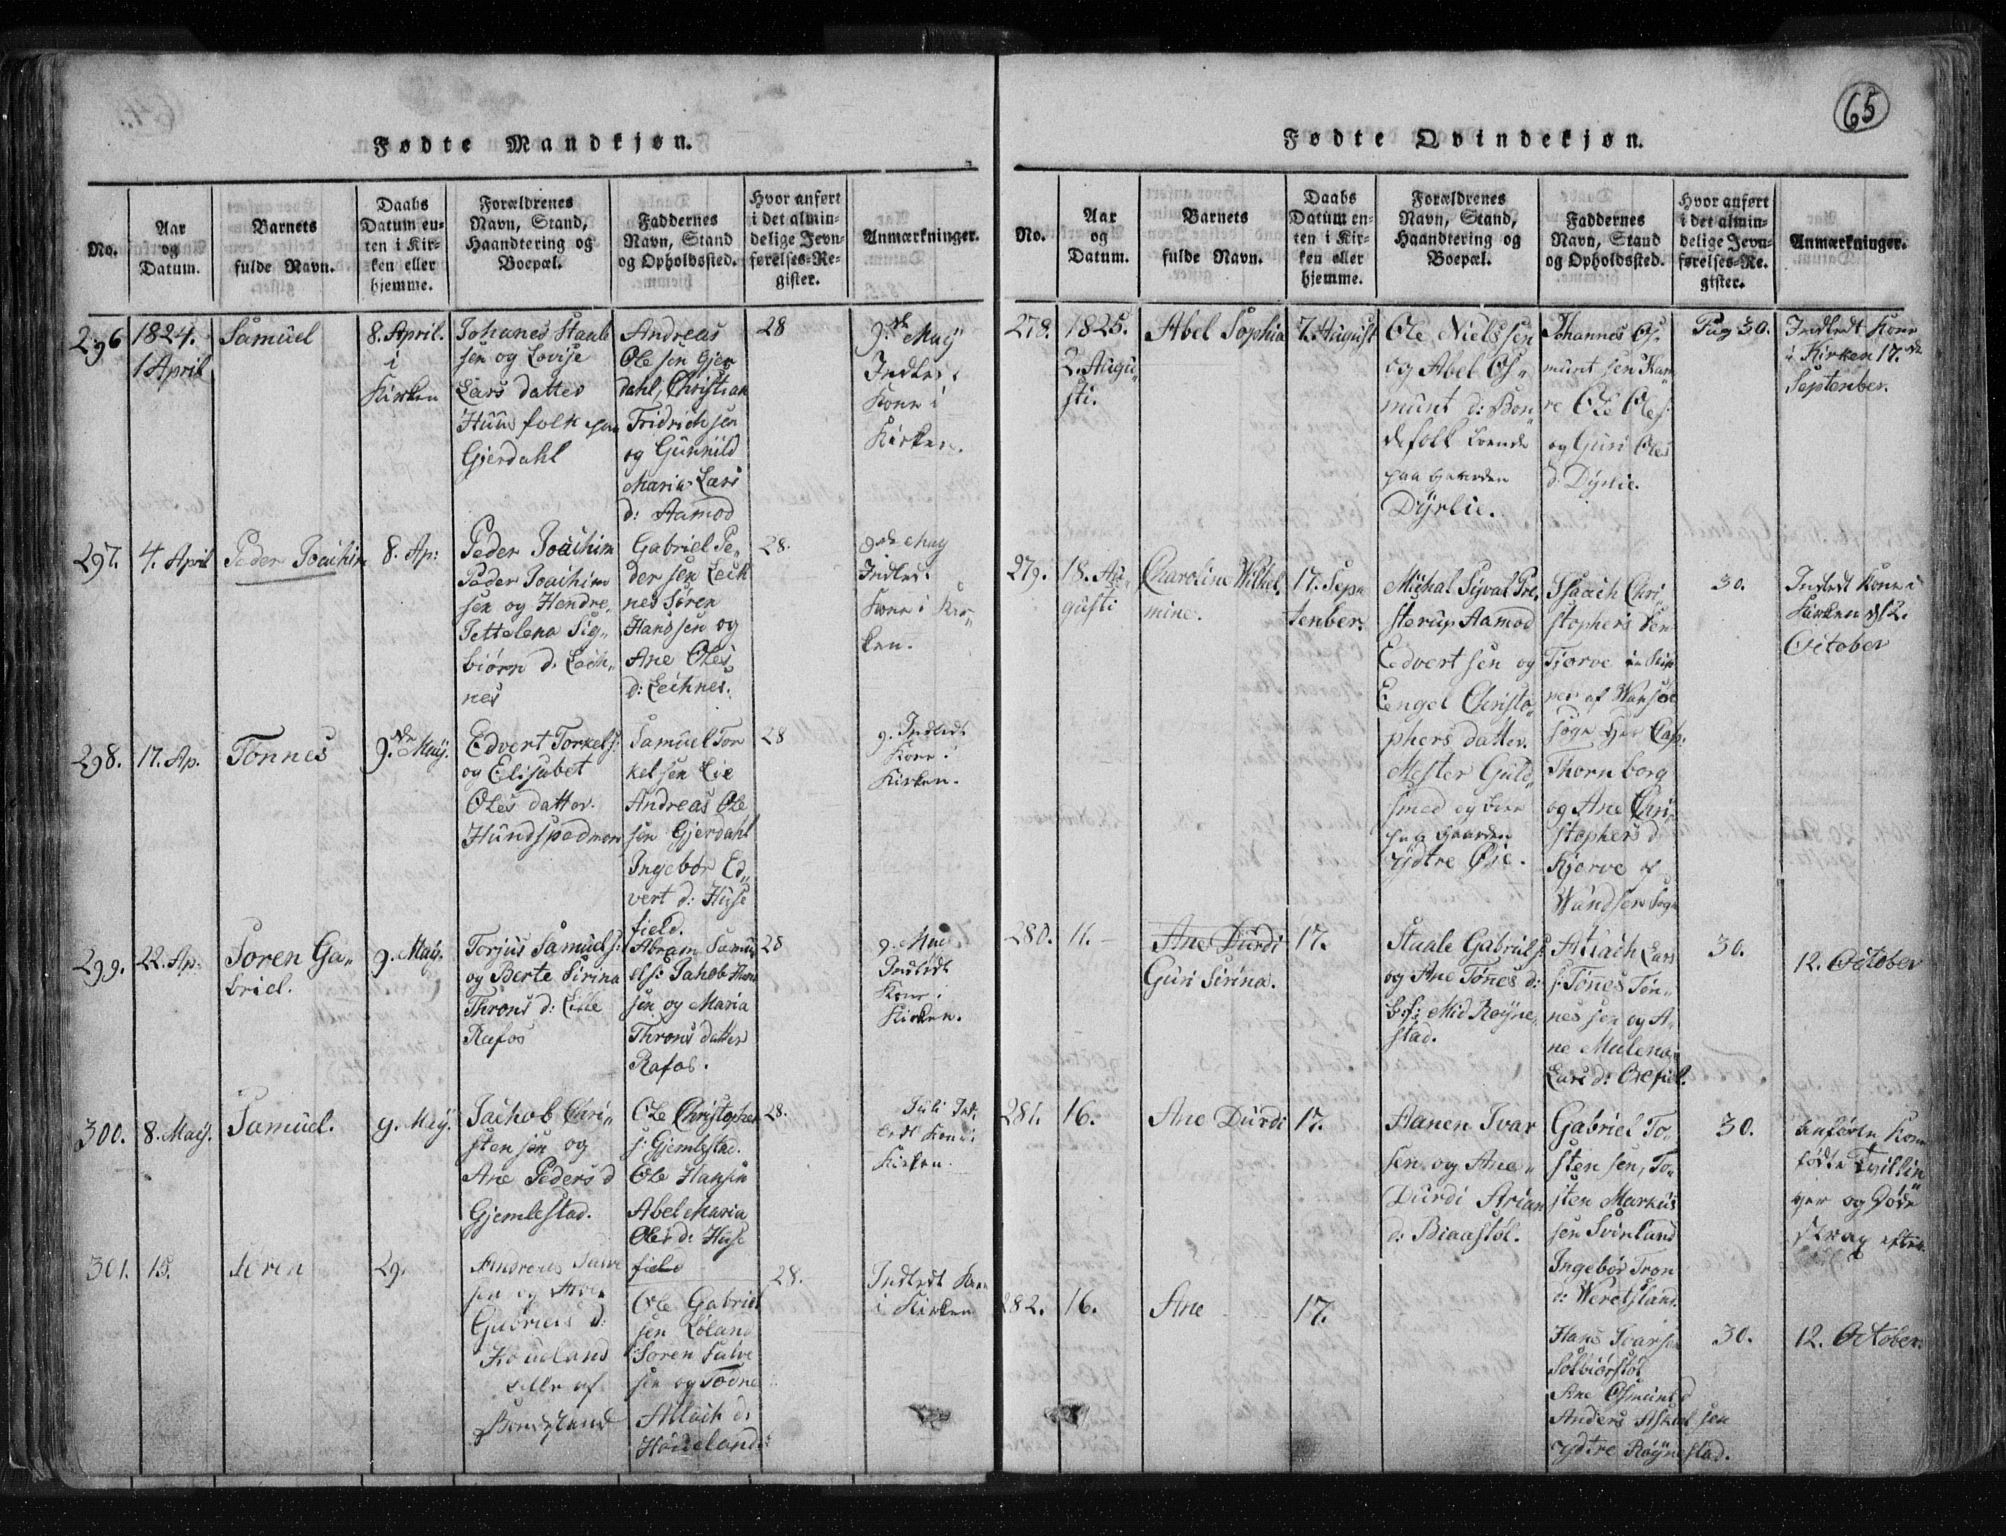 65
Fødte Mandkjøn.
No.
Aar
og
Datum.
Barnets
fulde Navn.
Daabs
Datum en-
ten i Kir-
ken eller
hjemme.
Forældrenes
Navn, Stand,
Haandtering og
Boepæl.
Faddernes
Navn, Stand
og Opholdssted.
Hvor anført
i det almin-
delige Jevn-
førelses-Re-
gister.
Anmærkninger.
296
1824.
1 April
Samüel
8. April.
i
Kirken
Johanes Staale
sen og Lovise
Lars datter
Huus folk paa
Gjerdahl
Andreas
Ole sen Gjer
dahl, Christian
Fridrich sen
og Gunnild
Maria Lars
d: Aamod
28
9de May
Indled.
Kone i
Kirken.
297.
4. April
Peder Joachim
8. Ap:
Peder Joachim
Peder Joachim
sen og Hendre,
Pettelena Sig„
biørn d. Lech„
nes
Gabriel Pe„
der sen Lech
nes Søren
Hans sen og
Ane Oles
d: Lechnes.
28.
9de May
Indled.
Kone i Kir„
ken.
298.
17. Ap.
Tønnes
9de May.
Edvert Torkels:
og Elisabet
Oles datter.
Hundspedmoen
Samüel Tor
kel sen Lie
Andreas Ole
sen Gjerdahl
Ingebor Ed„
vert d: Huse
field.
28
9. Indledt
Kone i
Kirken.
299.
22. Ap.
Søren Ga„
briel.
9. May.
Torjus Samuels:
og Berte Sirina
Throns d: Lille
Rafos
Abram Samu
els: Jahob Hans
sen og Maria
Throns datter
Rafos.
28
9. May
Indledt
Kone i
Kirken.
300.
8. May.
Samüel.
9. May.
Jachob Chri„
sten sen og
Ane Peders d
Gjemlestad.
Ole Christopher
s: Gjemlestad.
Ole Hansen
Abel Maria
Oles d: Huse
field
28.
Juli Ind.
Kone i
Kirken.
301.
15.
Søren
29.
Andreas Salve
sen og
Gabriels d:
Houeland
Ole Gabriel
sen Løland
Søren Salve
sen og Todne
Atlach d:
Houeland:
28.
Indledt Kone
i Kirken
Fødte Qvindekjøn.
No.
Aar
og
Datum.
Barnets
fulde Navn.
Daabs
Datum en-
ten i Kir-
ken eller
hjemme.
Forældrenes
Navn, Stand,
Haandtering og
Boepæl.
Faddernes
Navn, Stand
og Opholdssted.
Hvor anført
i det almin-
delige Jevn-
førelses-Re-
gister.
Anmærkninger.
278.
1825.
2. Augu„
sti.
Abel Sophia
7. August
Ole Niels sen
og Abel Os„
münt d: Bon„
defolk boende
paa gaarden
Dÿrlie.
Johannes Os„
munt sen Kam„
re Ole Oles:
og Guri Oles
d. Dÿrlie.
Pag 30.
Indledt Kone
i Kirken 17. de
September.
279.
18. Au„
gusti
Charoline Wilhel„
mine.
17. Sep„
tenber.
Michal Sÿval Pre,
sterup Aamod
Eedvert sen og
Engel Christo„
phers datter.
Mester Guld„
smed og boer
paa gaarden
Ydtre Øie.
Isaach Chri
stophers sen
Tjorve en Skip
per af Wanse
sogn Hr: Cap:
Thornborg
og Ane Chri„
stophers d
Kjorve af
Wandsen Sogn
30.
Indledt Kone i
Kirken d. 2.
October
280.
11.
Ane Durdi
Guri Sirina.
17.
Staale Gabriels:
og Ane Tønnes d:
b: f: Mid Røÿne„
stad.
Atlach Lars
s: Tønes Tøn„
nes sen og A„
ne Malena
Lars d: Orefiel.
30.
12. October
281.
16.
Ane Durdi
17.
Hanen Ivar
sen og Ane„
Durdi Arian
d: Biaastøl.
Gabriel To„
sten sen, To„
sten Markus
sen Svinland
Ingebor Tron
d: Weretsland.
30.
anførte Kone
fødte Tvillin
ger og Døde
Strax efter.
282.
16.
Ane
17.
Hans Ivarsen
Solbiørstøl
Ane Osmund d
Anders Askel sen
Ydtre Røÿnestad.
30.
12. October.